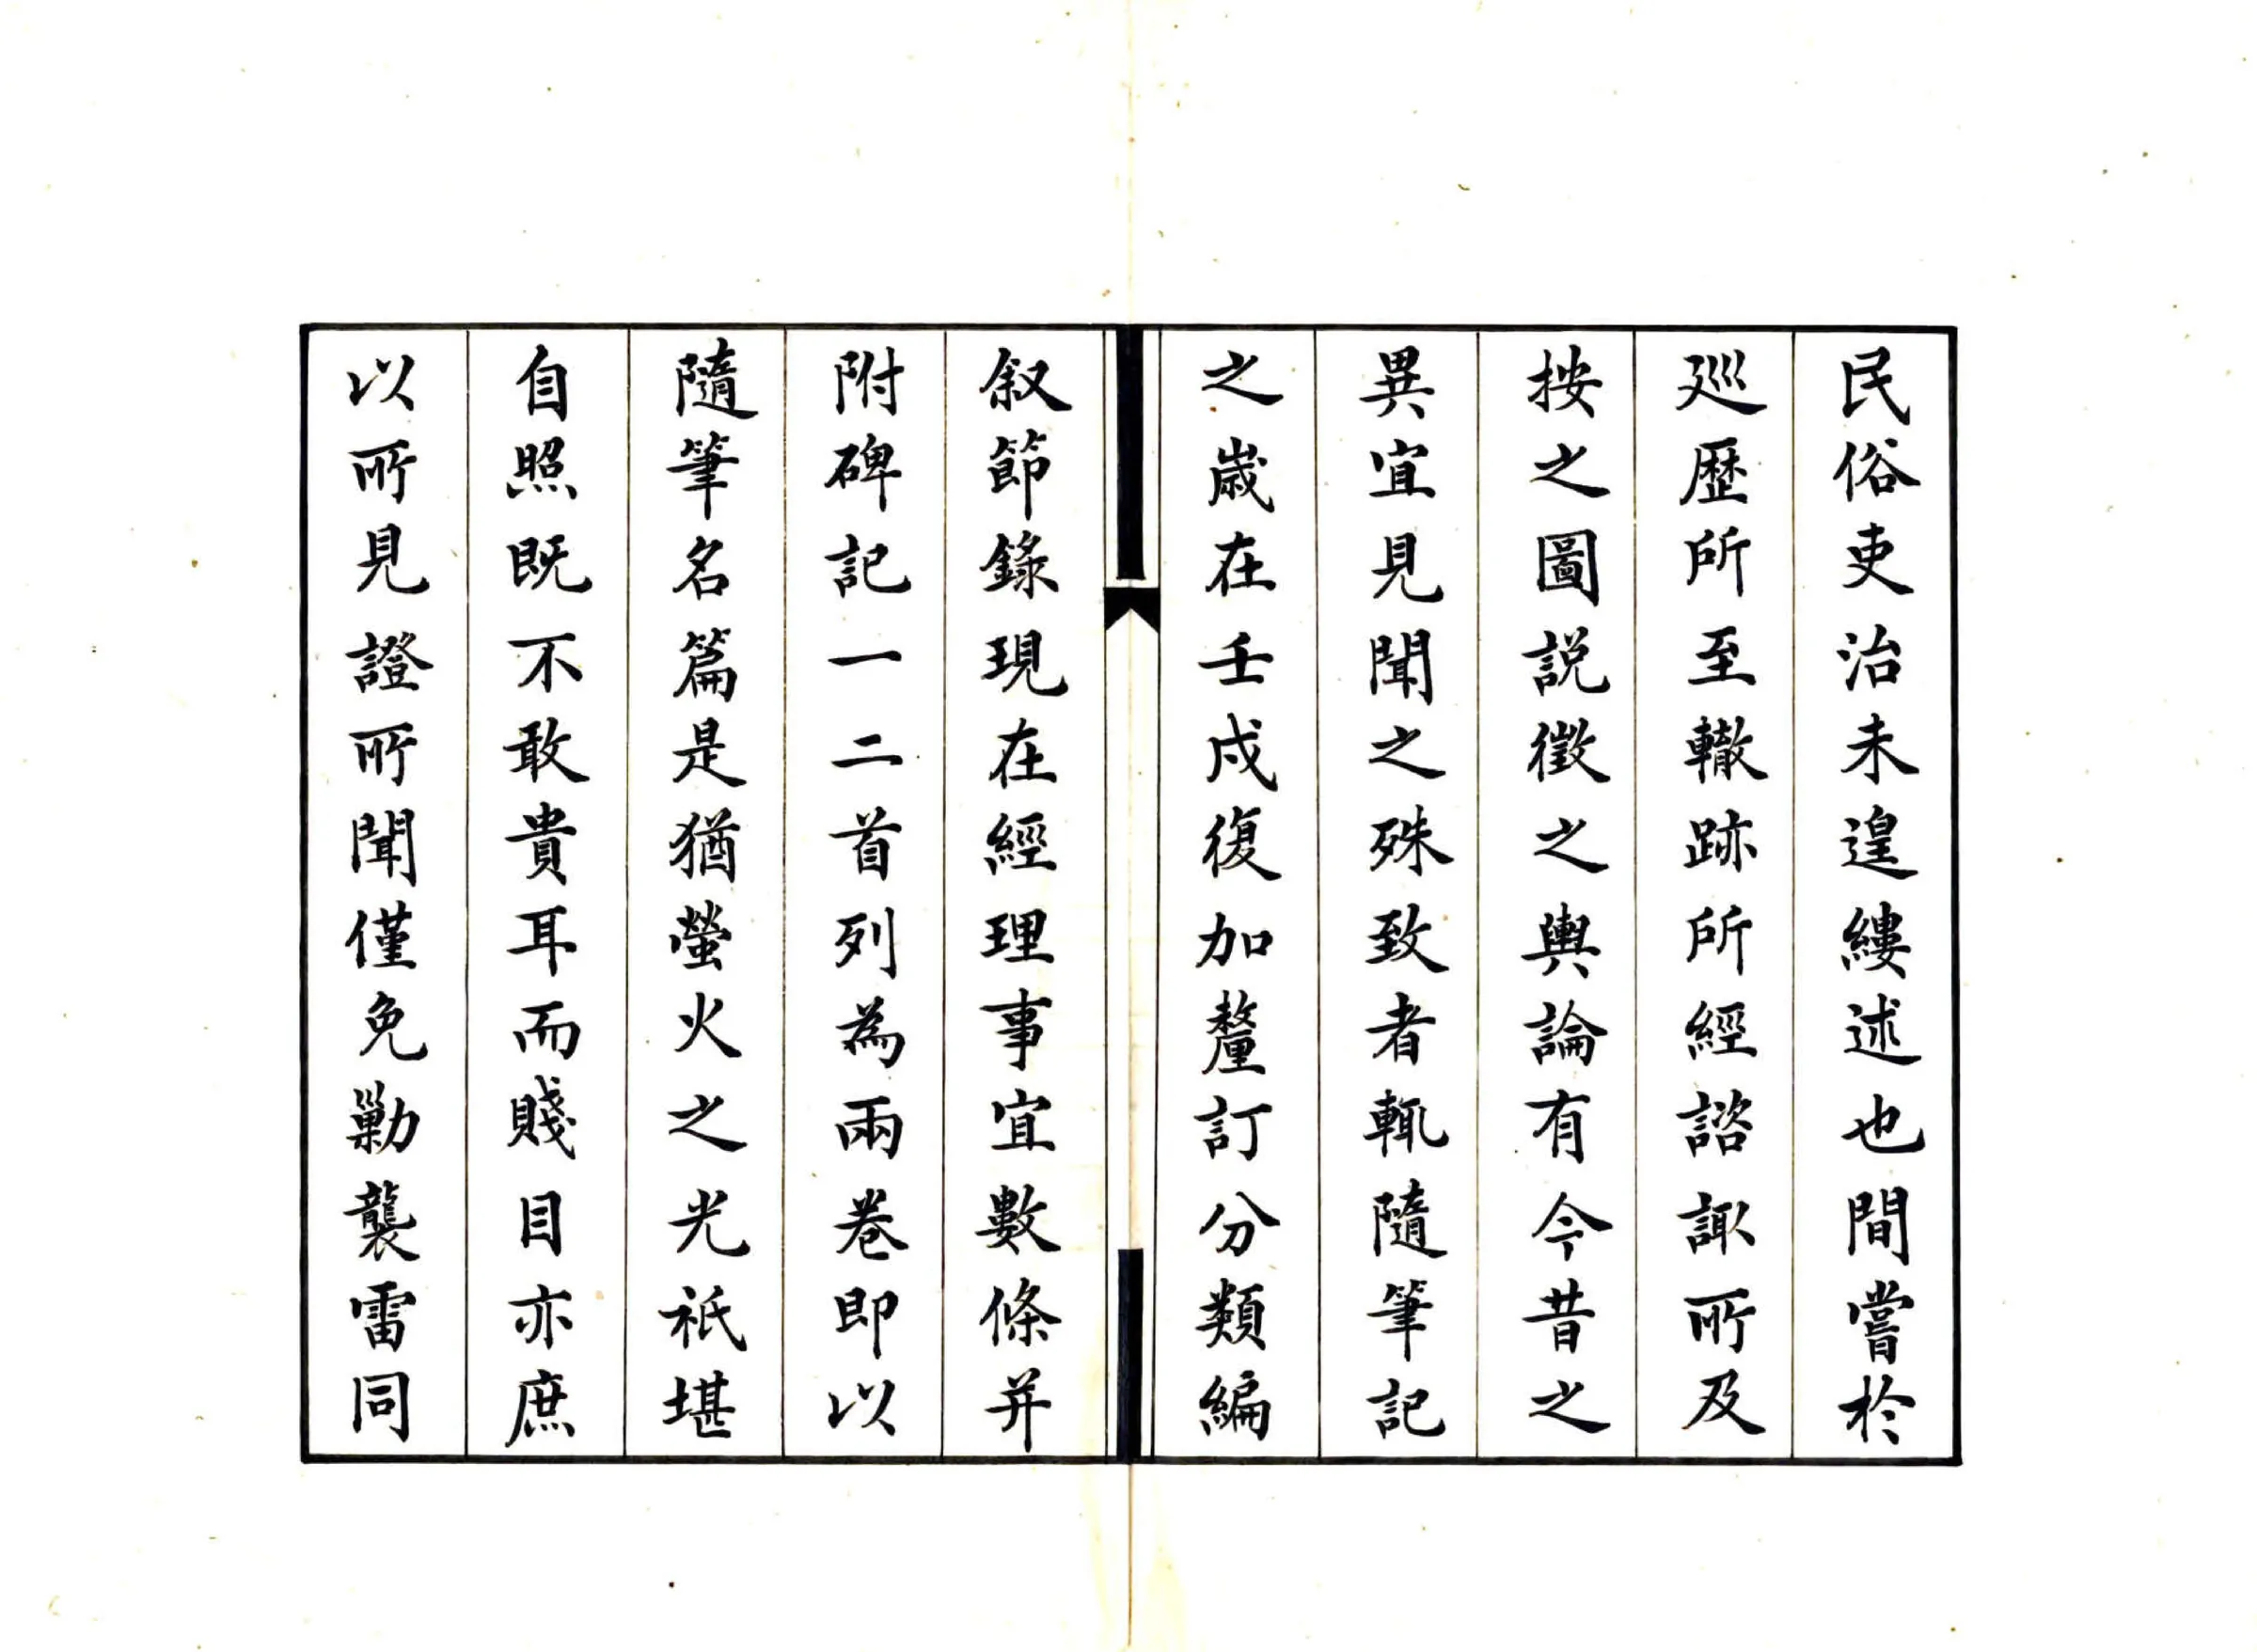 民俗吏治未遑縷述也間嘗於
廵歷所至轍跡所經諮諏所及
按之圖説徵之輿論有今昔之
異宜見聞之殊致者輒隨筆記
之歲在壬戌復加釐訂分類編
叙節錄現在經理事宜數條并
附碑記一二首列為兩卷即以
隨筆名篇是猶螢火之光祇堪
自照既不敢貴耳而賤目亦庶
以所見證所聞僅免勦襲雷同